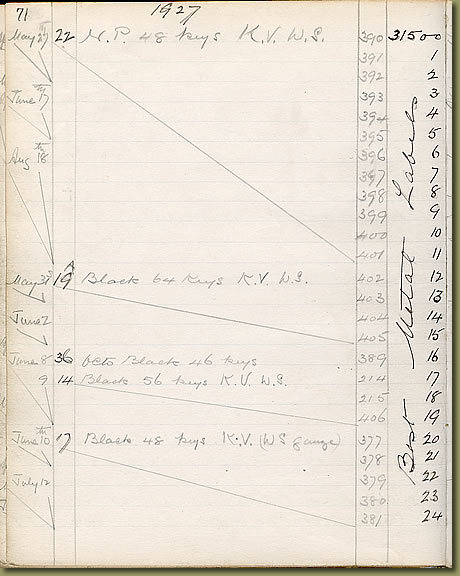 71 1927
May 27 22 N.P. 48 keys K.V. W.S. 390 31500
391 1
392 2
June 17th 393 3
394 4
395 5
Aug 18th 396 6
397 7
398 8
399 9
400 10
401 11
May 31st 19 Black 64 Keys K.V. W.S. 402 12
403 13
June 2 404 14
405 15
June 8 36 Octo Black 46 keys 389 16
9 14 Black 56 keys K.V. W.S. 214 17
215 18
406 19
June 10th 17 Black 48 keys K.V. (WS gauze) 377 20
378 21
July 12 379 22
380 23
381 24
Best Metal Labels